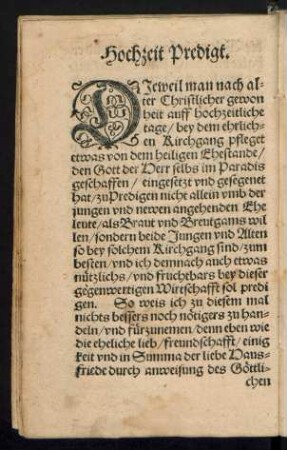 Hochzeit Predigt.
DJeweil man nach al-
ter Christlicher gewon
heit auff hochzeitliche
tage / bey dem ehrlich-
en Kirchgang pfleget
etwas von dem heiligen Ehestande /
den Gott der Herr selbs im Paradis
geschaffen / eingesetzt vnd gesegenet
hat / zuPredigen nicht allein vmb der
jungen vnd newen angehenden Ehe
leute / als Braut vnd Breutgams wil
len / sondern beide Jungen vnd Alten
so bey solchem Kirchgang sind / zum
besten / vnd ich demnach auch etwas
nützlichs / vnd fruchtbars bey dieser
gegenwertigen Wirtschafft sol predi
gen. So weis ich zu diesem mal
nichts bessers noch nötigers zu han-
deln / vnd fürzunemen / denn eben wie
die eheliche lieb / freundschafft / einig
keit vnd in Summa der liebe Haus-
friede durch anweisung des Göttli-
chen